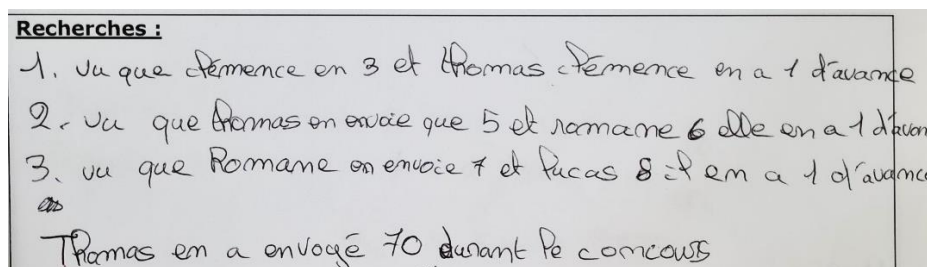 Recherches :
1. vu que clémence en 3 et thomas clémence en a 1 d'avance
2. vu que thomas en envoie que 5 et romane 6 elle en a 1 d'avan
3. vu que Romane en envoie 7 et Lucas 8 il en a 1 d'avance
Thomas em a envoyé 70 durant le concours